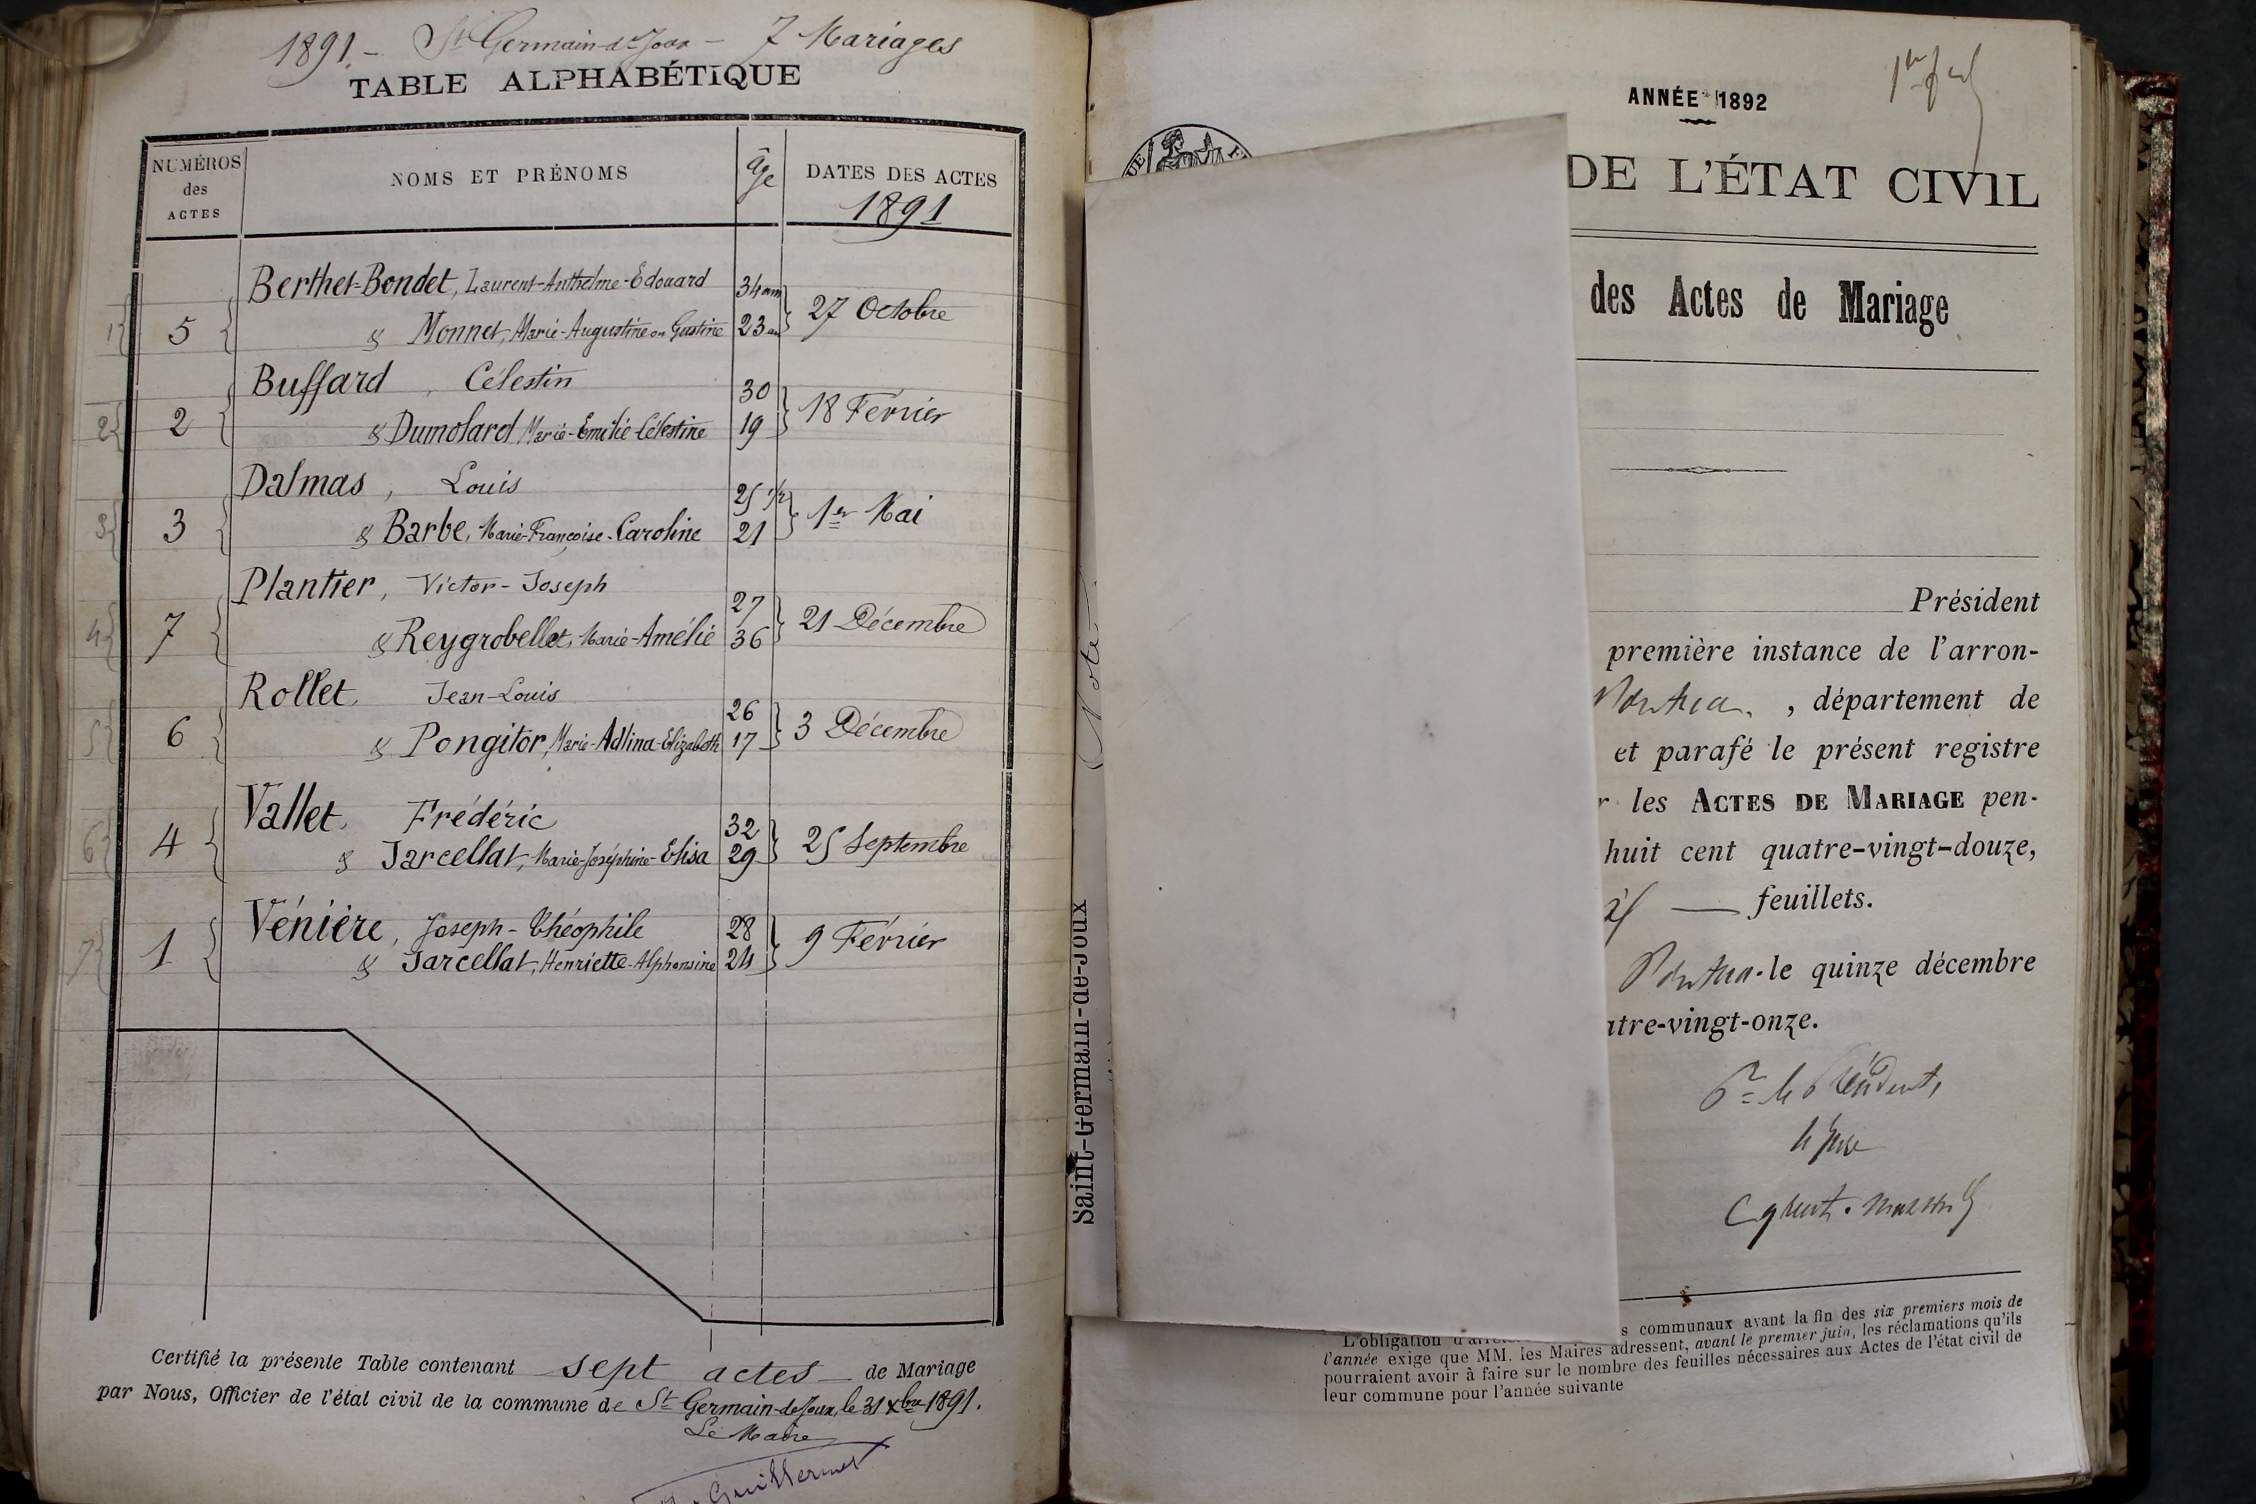 1891. - St Germain-de-Joux - 7 Mariages
TABLE ALPHABÉTIQUE
NUMÉROS des ACTES
NOMS ET PRÉNOMS
âge
DATES DES ACTES
1891
Berthet-Bondet, Laurent-Anthelme-Edouard 34 ans
1 5 & Monnet, Marie-Augustine ou Gustine 23 ans 27 Octobre
Buffard, Célestin 30
2 2 & Dumolard Marie-Emilie-Célestine 19 18 Février
Dalmas, Louis 25 1/2
3 3 & Barbe, Marie-Françoise-Caroline 21 1er Mai
Plantier, Victor-Joseph 27
4 7 & Reygrobellet, Marie-Amélie 36 21 Décembre
Rollet, Jean-Louis 26
5 6 & Pongitor, Marie-Adlina-Elizabeth 17 3 Décembre
Vallet, Frédéric 32
6 4 & Jarcellat, Marie-Joséphine-Elisa 29 25 Septembre
Vénière, Joseph-Théophile 28
7 1 & Jarcellat, Henriette-Alphonsine 24 9 Février
Certifié la présente Table contenant sept actes de Mariage
par Nous, Officier de l'état civil de la commune de St Germain-de-Joux, le 31 Xbre 1891.
Le Maire
Guillermet
Note
Saint-Germain-de-Joux
ANNÉE 1892
DE L'ÉTAT CIVIL
des Actes de Mariage
Président
première instance de l'arron-
Nantua, département de
et parafé le présent registre
r les ACTES DE MARIAGE pen-
huit cent quatre-vingt-douze,
feuillets.
Nantua le quinze décembre
atre-vingt-onze.
Pr le Président,
le Juge
L'obligation d'arrêter s communaux avant la fin des six premiers mois de
l'année exige que MM. les Maires adressent, avant le premier juin, les réclamations qu'ils
pourraient avoir à faire sur le nombre des feuilles nécessaires aux Actes de l'état civil de
leur commune pour l'année suivante